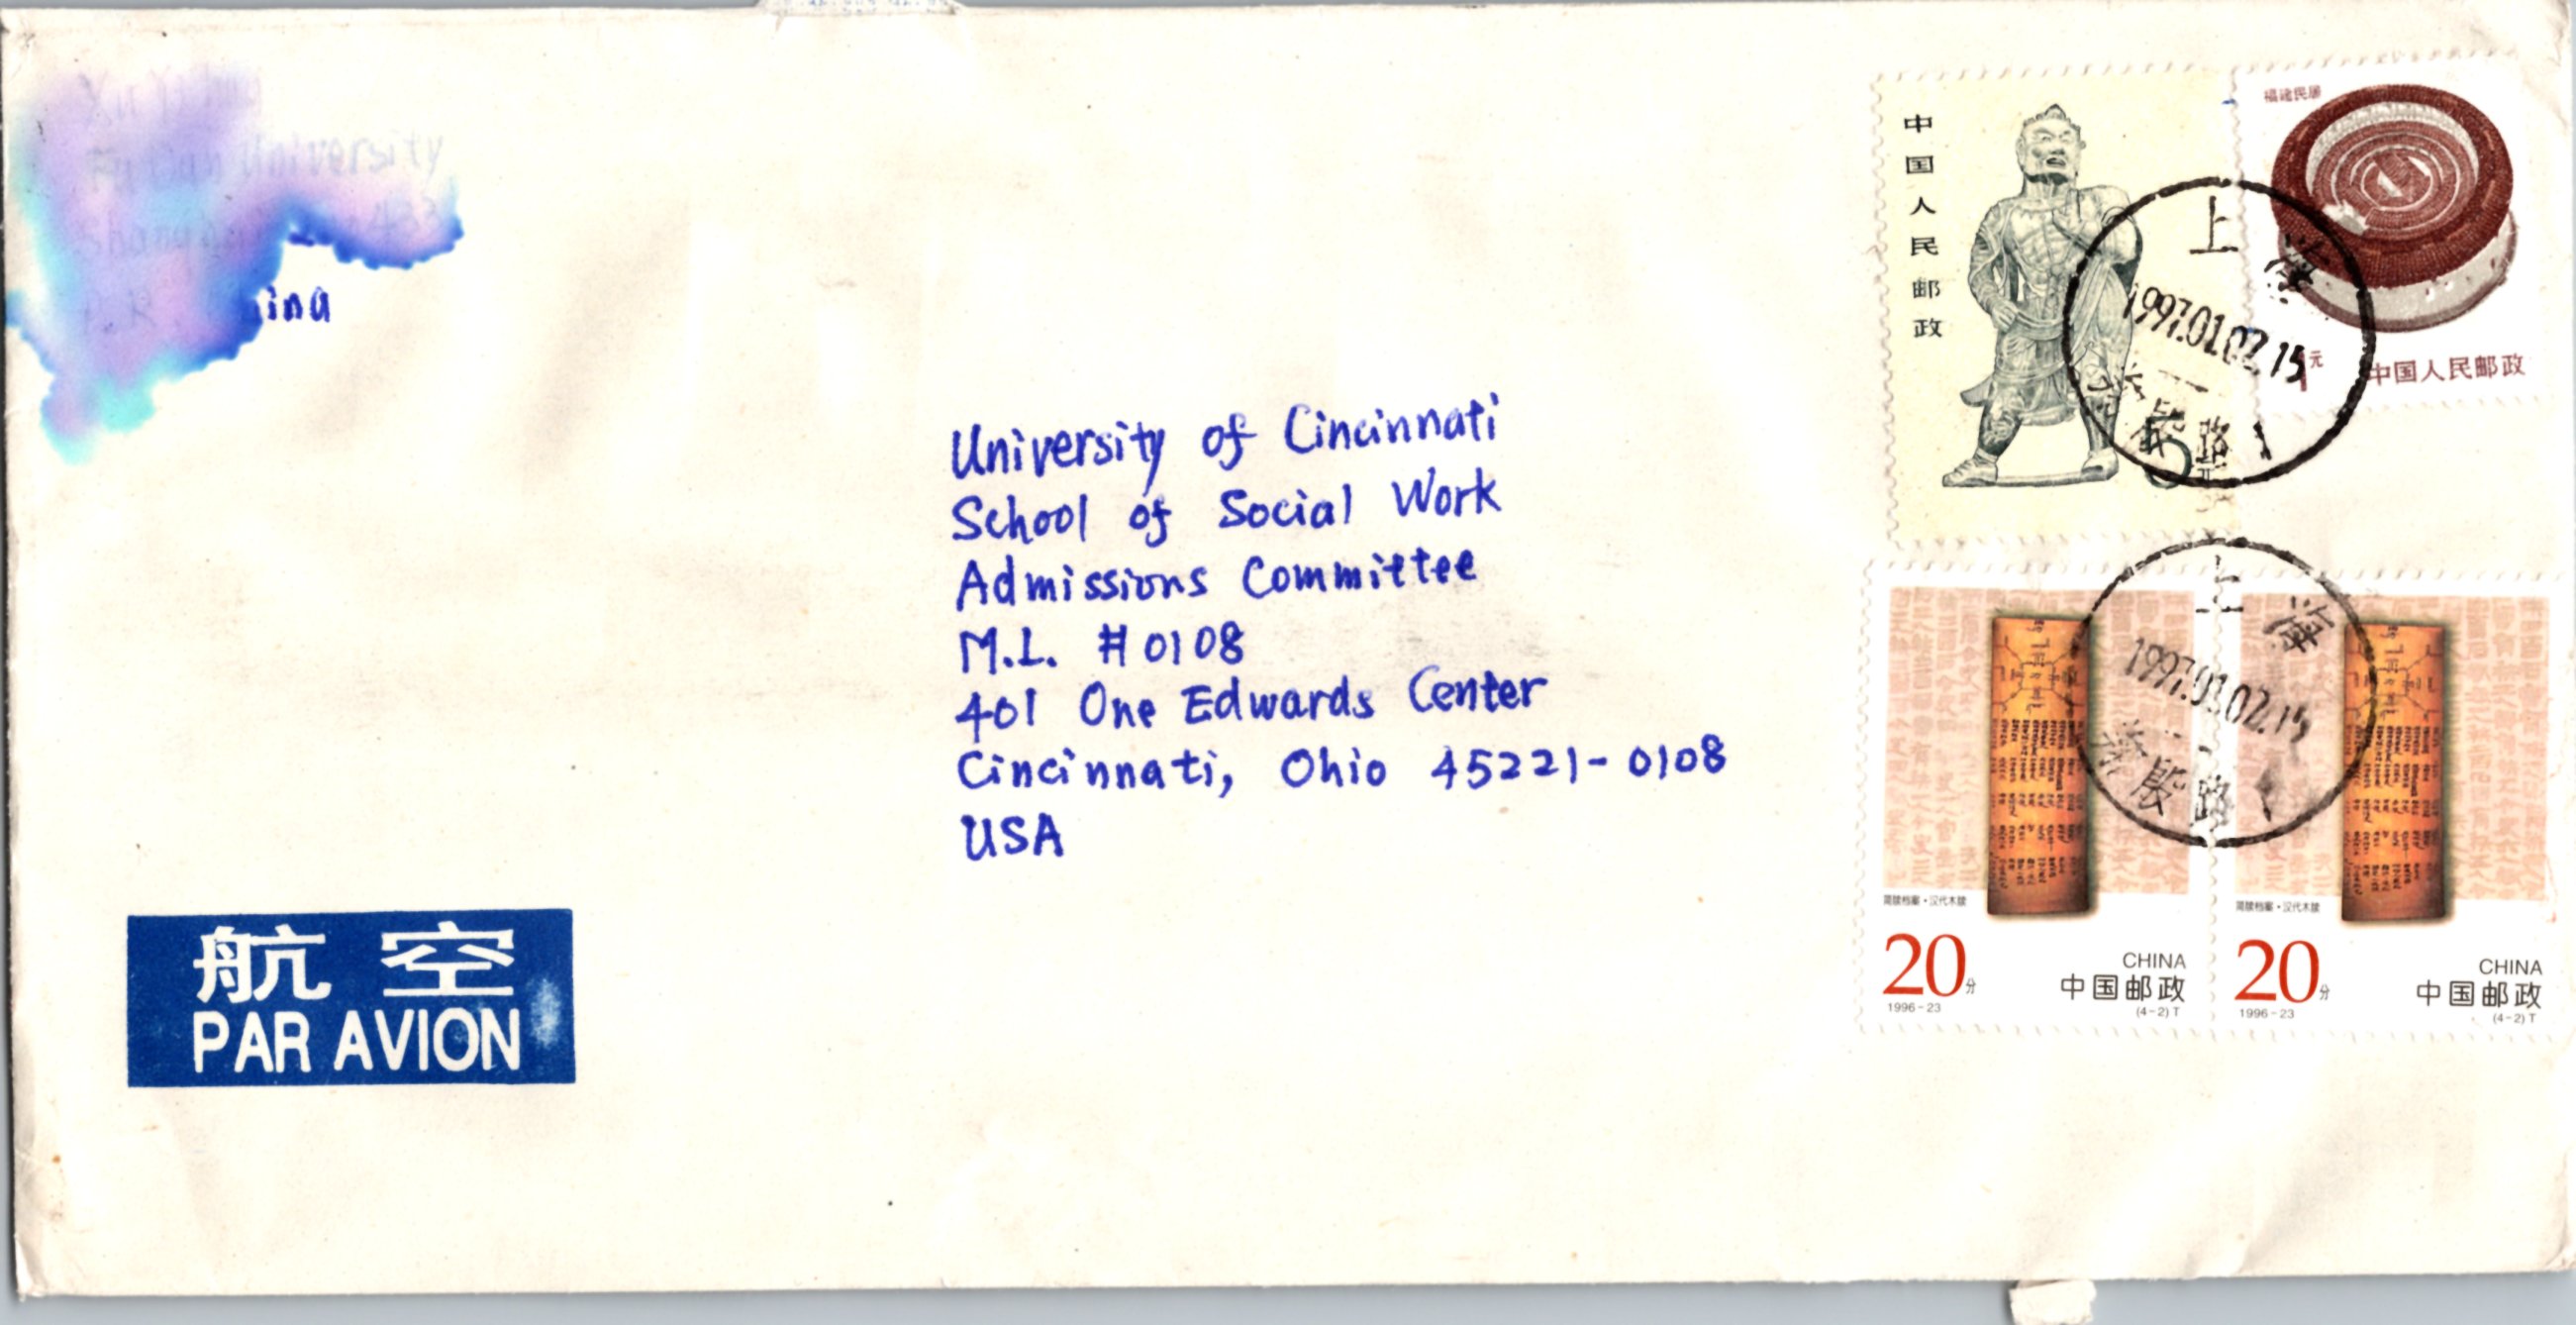 University
Shangha
ina
University of Cincinnati
School of Social Work
Admissions Committee
M.L. #0108
401 One Edwards Center
Cincinnati, Ohio 45221-0108
USA
航空
PAR AVION
中国人民邮政
福建民居
1元
中国人民邮政
上海
1997.01.02.15
路
上海
1997.01.02.15
路
简牍档案·汉代木牍
20分
1996-23
CHINA
中国邮政
(4-2)T
简牍档案·汉代木牍
20分
1996-23
CHINA
中国邮政
(4-2)T